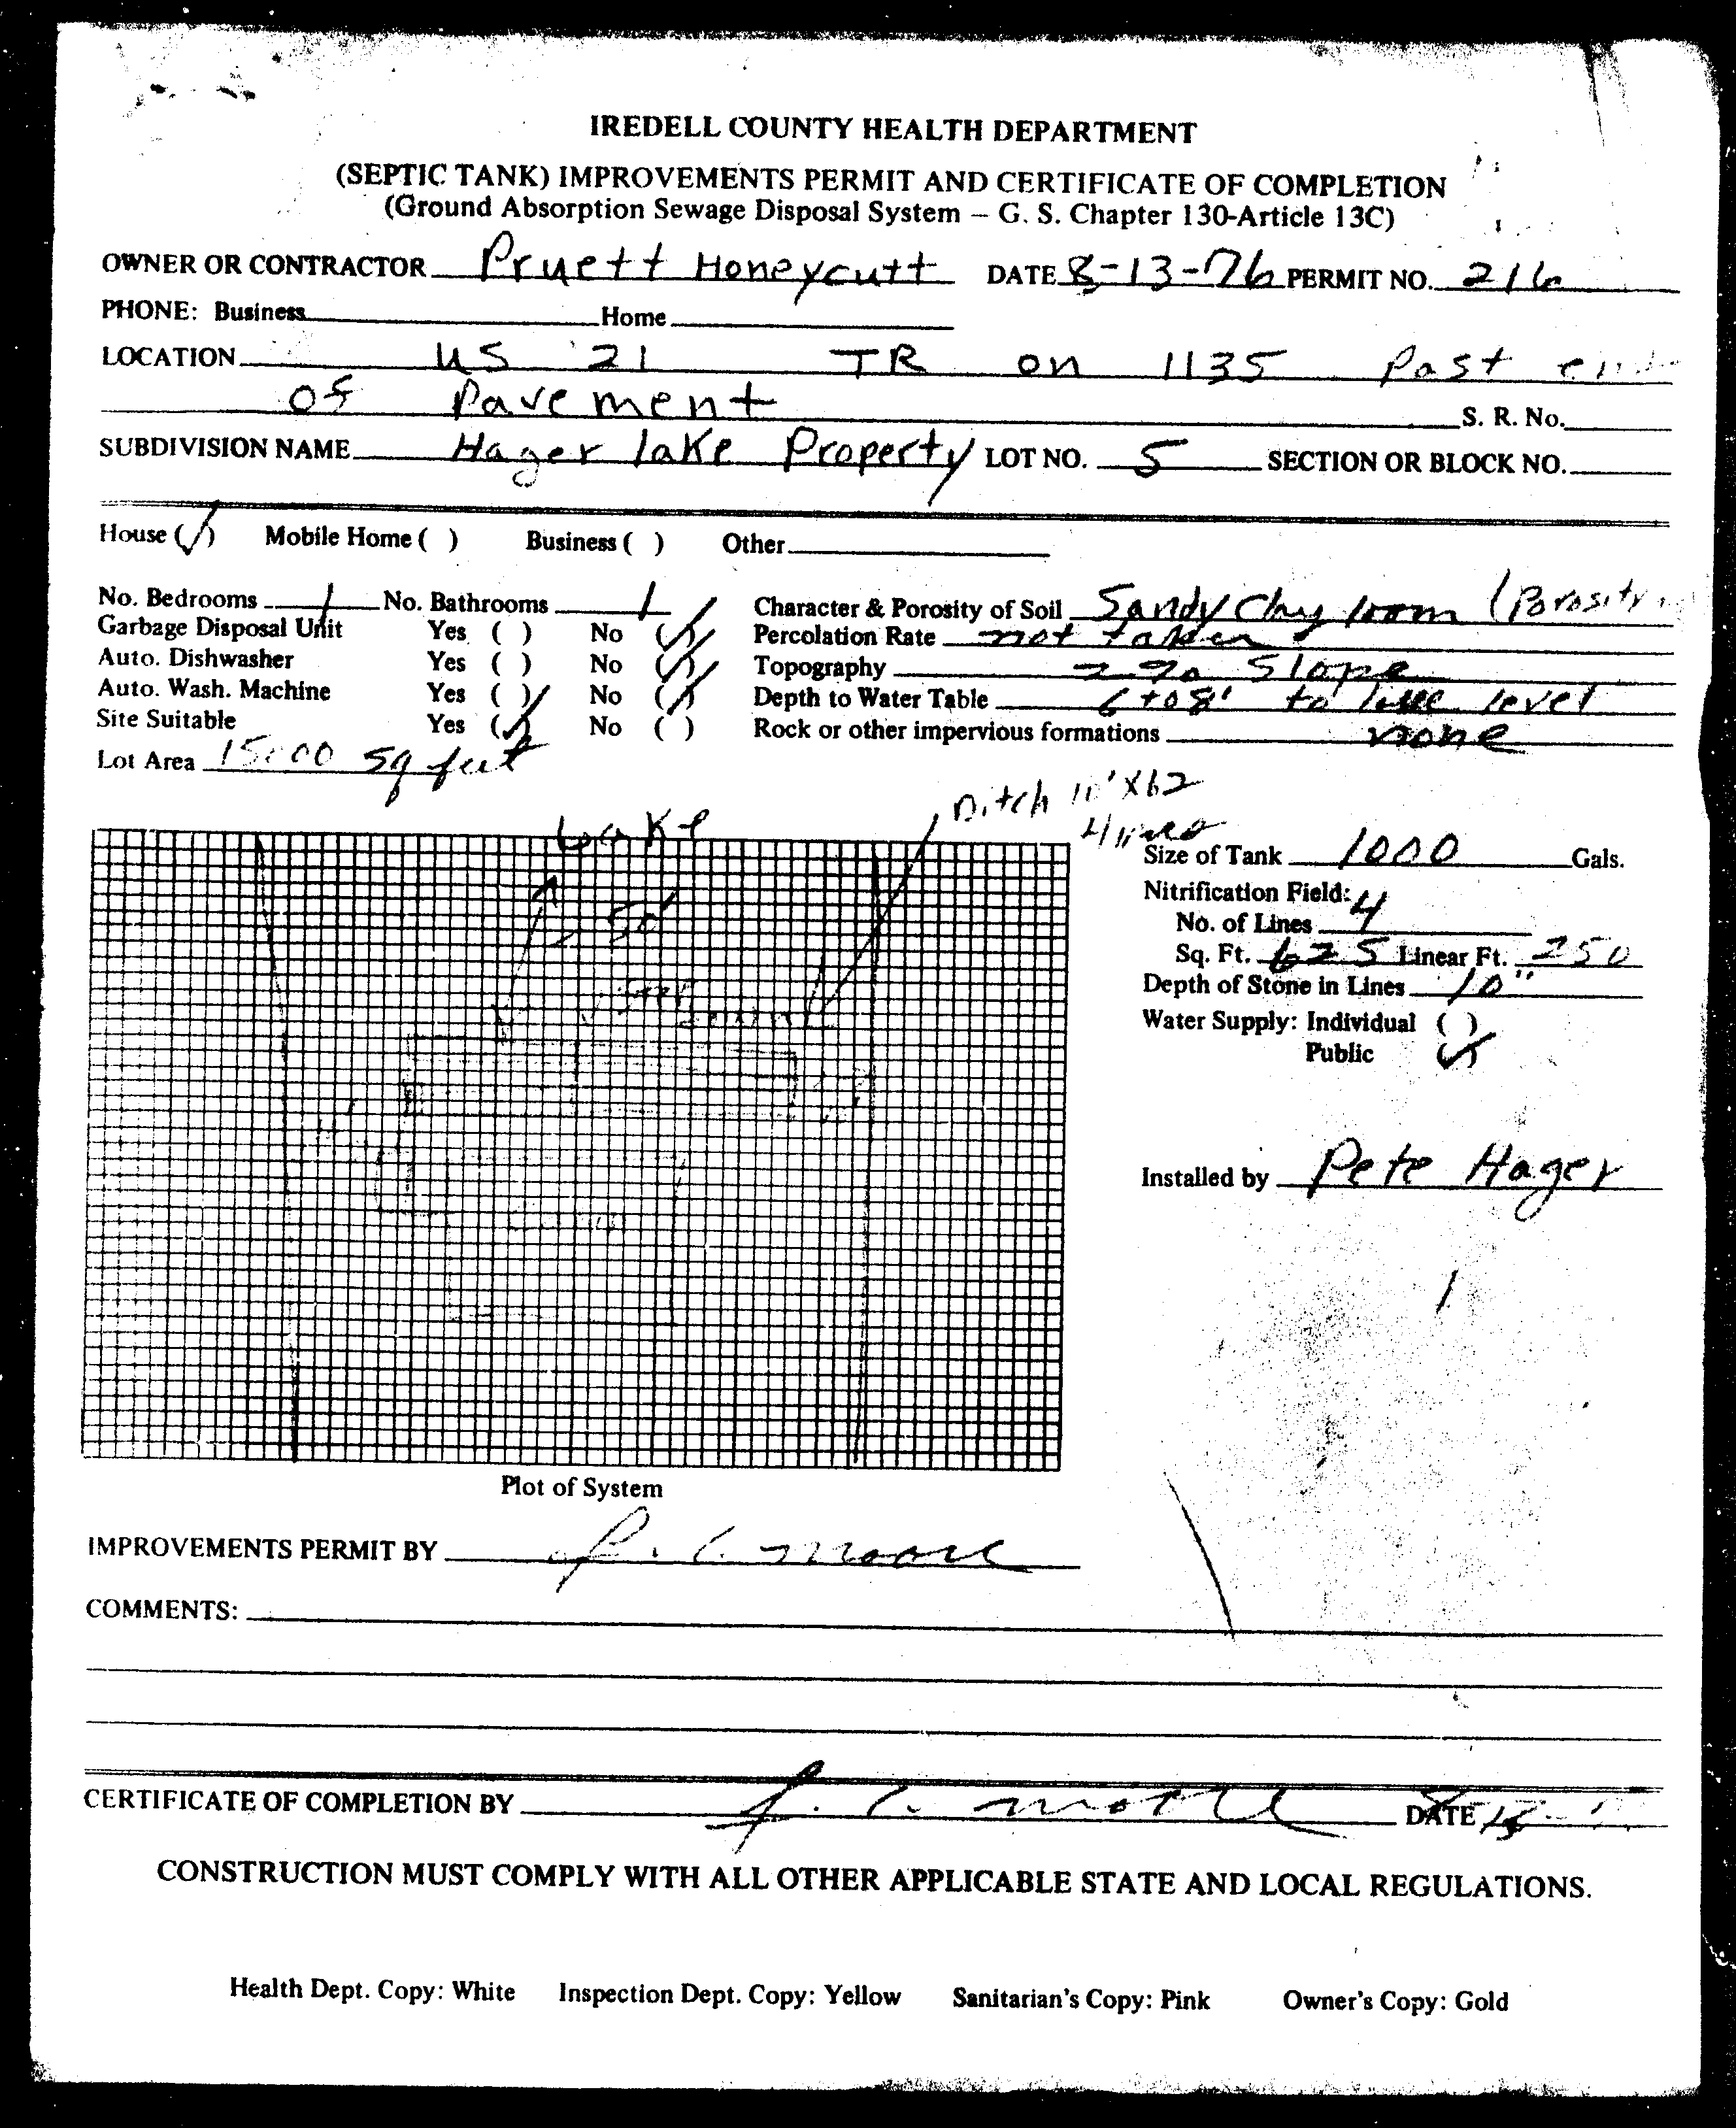 IREDELL COUNTY HEALTH DEPARTMENT
(SEPTIC TANK) IMPROVEMENTS PERMIT AND CERTIFICATE OF COMPLETION
(Ground Absorption Sewage Disposal System – G. S. Chapter 130-Article 13C)
OWNER OR CONTRACTOR Pruett Honeycutt DATE 8-13-76 PERMIT NO. 216
PHONE: Business Home
LOCATION US 21 TR on 1135 Past
of Pavement S. R. No.
SUBDIVISION NAME Hager lake Property LOT NO. 5 SECTION OR BLOCK NO.
House (✓) Mobile Home ( ) Business ( ) Other
No. Bedrooms 1 No. Bathrooms 1 Character & Porosity of Soil Sandy Clay loom (Porosity
Garbage Disposal Unit Yes ( ) No (✓) Percolation Rate not taken
Auto. Dishwasher Yes ( ) No (✓) Topography 2% Slope
Auto. Wash. Machine Yes ( ) No (✓) Depth to Water Table 6 to 8' to level
Site Suitable Yes (✓) No ( ) Rock or other impervious formations none
Lot Area 15000 sq feet
Ditch X 62
Lake 4 lines
50'
Size of Tank 1000 Gals.
Nitrification Field:
No. of Lines 4
Sq. Ft. 625 Linear Ft. 250
Depth of Stone in Lines 10"
Water Supply: Individual ( )
Public (✓)
Installed by Pete Hager
Plot of System
IMPROVEMENTS PERMIT BY Moore
COMMENTS:
CERTIFICATE OF COMPLETION BY Moore DATE
CONSTRUCTION MUST COMPLY WITH ALL OTHER APPLICABLE STATE AND LOCAL REGULATIONS.
Health Dept. Copy: White Inspection Dept. Copy: Yellow Sanitarian's Copy: Pink Owner's Copy: Gold